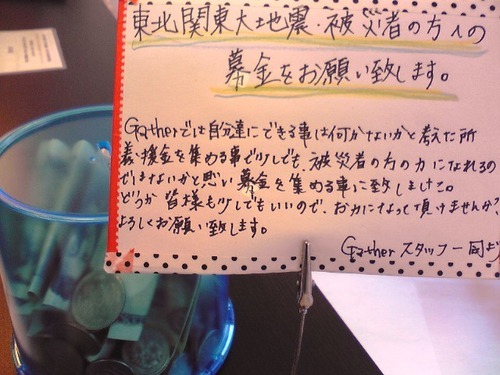 東北関東大地震・被災者の方への
募金をお願い致します。
Gatherでは自分達にできる事は何かないかと考えた所
義援金を集める事で少しでも、被災者の方の力になれるの
ではないかと思い募金を集める事に致しました。
どうか皆様も少しでもいいので、お力になって頂けませんか?
よろしくお願い致します。
Gather スタッフ一同より